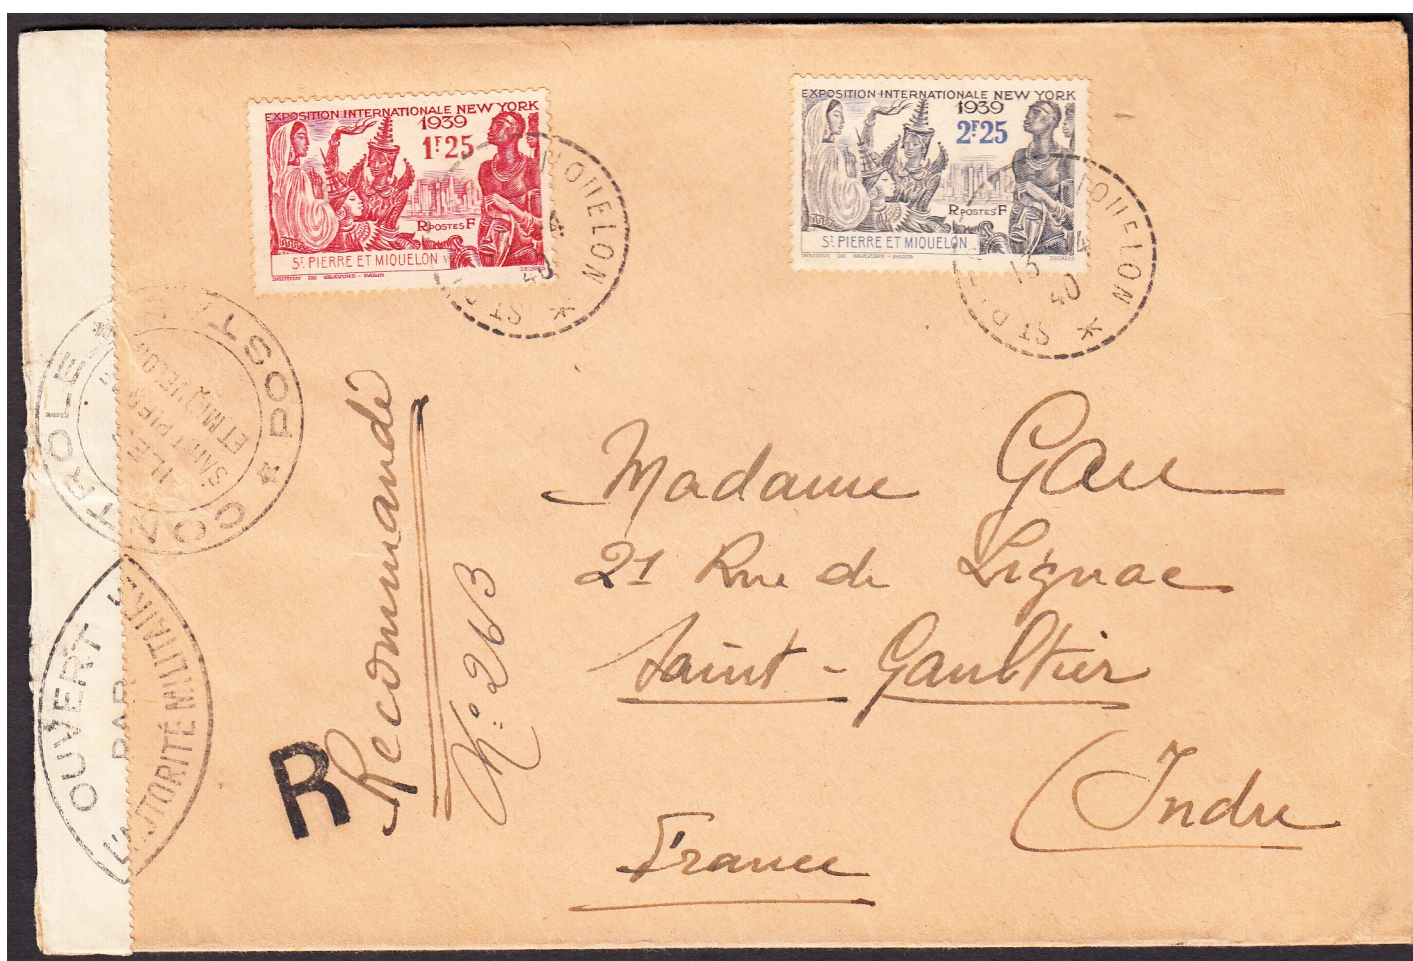 EXPOSITION INTERNATIONALE NEW YORK
1939
1F25
R POSTES F
ST PIERRE ET MIQUELON
INSTITUT DE GRAVURE - PARIS
DECARIS
EXPOSITION INTERNATIONALE NEW YORK
1939
2F25
R POSTES F
ST PIERRE ET MIQUELON
INSTITUT DE GRAVURE - PARIS
DECARIS
QUELON * ST
4
40
QUELON * ST PI
15 4
40
CONTRÔLE * POST
ILE
SAINT PIERRE
ET MIQUELON
OUVERT
PAR
L'AUTORITÉ MILITAIRE
R
Recommandé
N° 263
Madame Gau
21 Rue de Lignac
Saint-Gaultier
(Indre
France